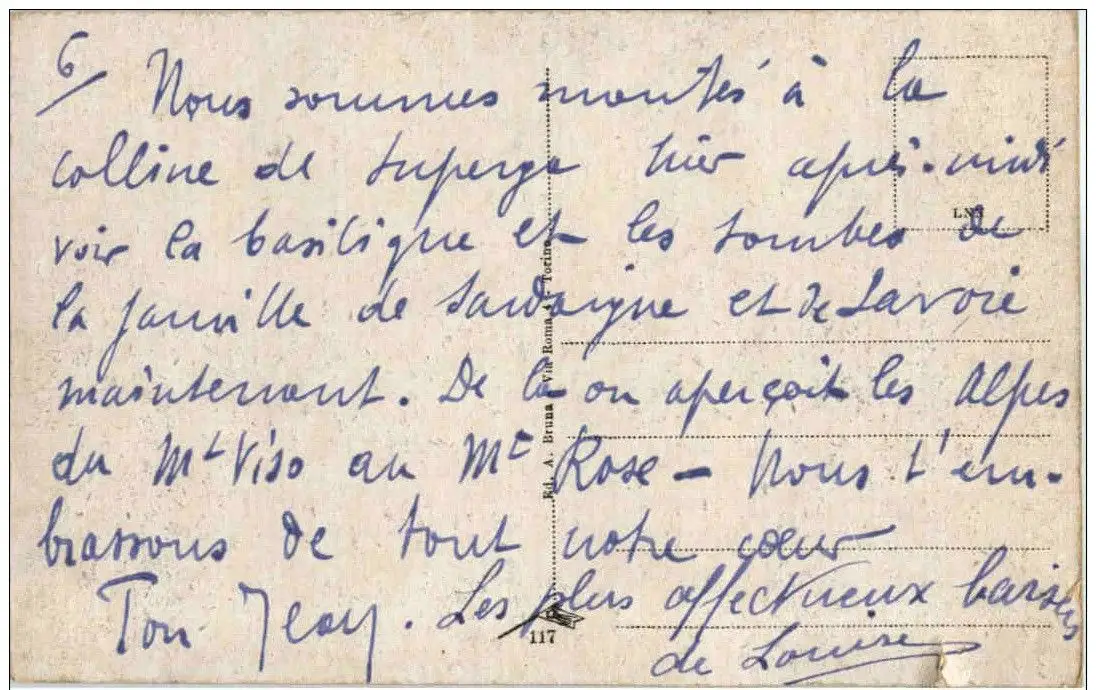 6/ Nous sommes montés à la
colline de Superga hier après-midi
voir la basilique et les tombes de
la famille de Sardaigne et de Savoie
maintenant. De là on aperçoit les Alpes
du Mt Viso au Mt Rose - Nous t'em-
brassons de tout notre cœur
Ton Jean. Les plus affectueux baisers
de Louise
Ed. A. Bruna Via Roma Torino
117